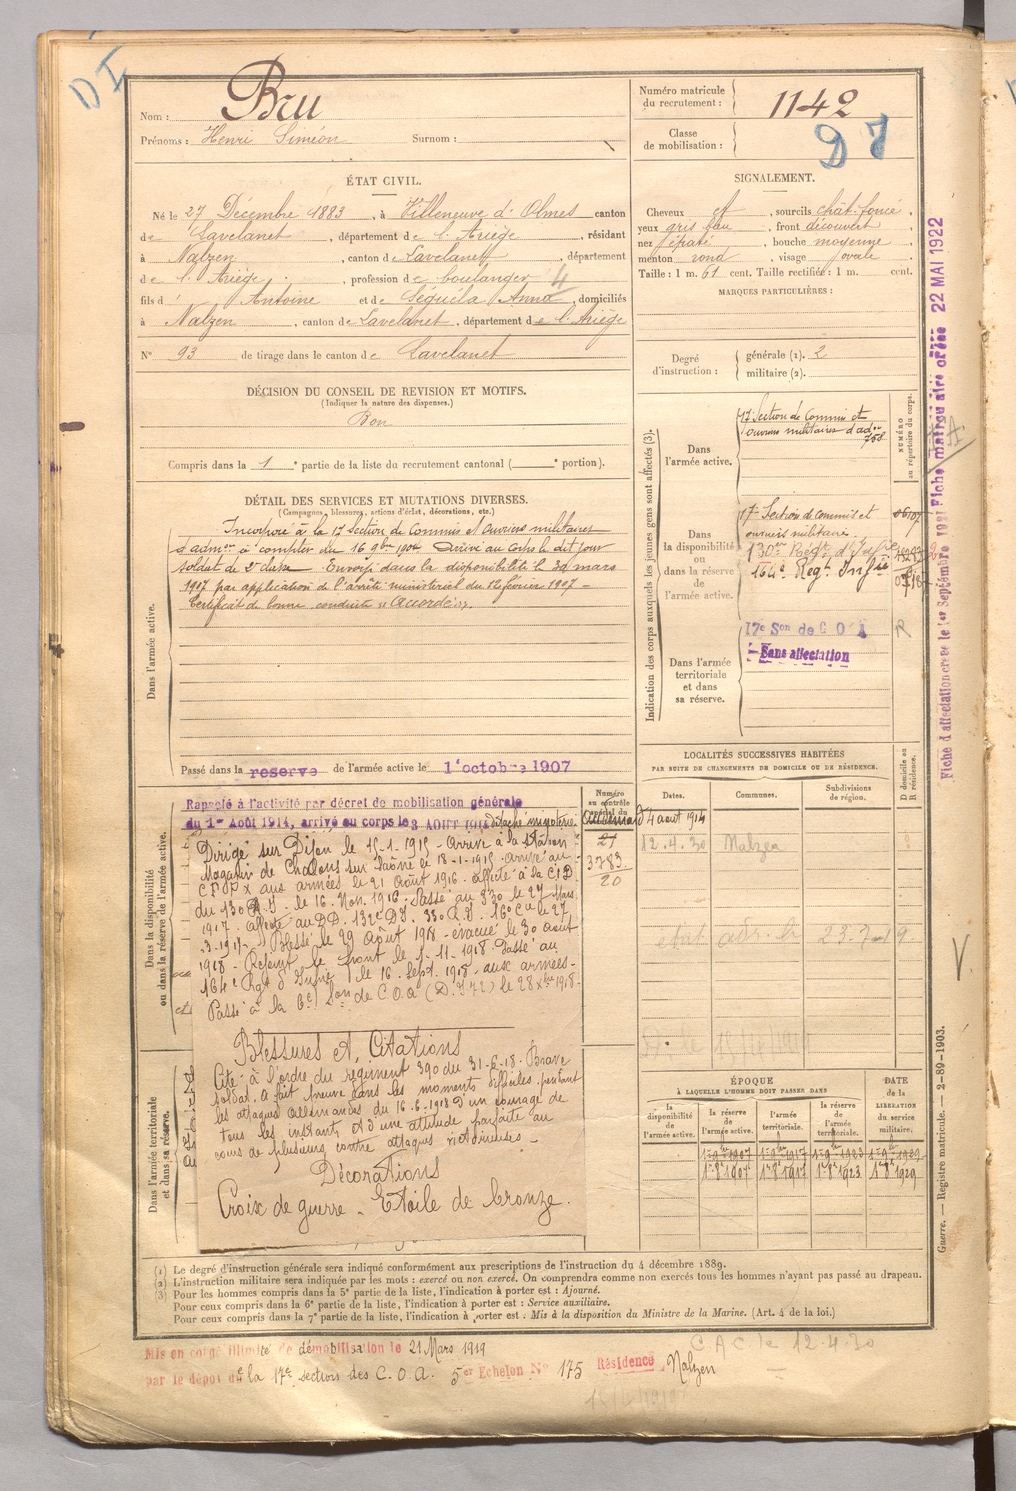 D I
Nom : Bru
Prénoms : Henri Siméon Surnom :
Numéro matricule du recrutement : 1142
Classe de mobilisation :
ÉTAT CIVIL.
Né le 27 Décembre 1883, à Villeneuve d'Olmes canton
de Lavelanet, département de l'Ariège, résidant
à Nalzen, canton de Lavelanet, département
de l'Ariège, profession de boulanger 4
fils d' Antoine et de Séguéla Anna, domiciliés
à Nalzen, canton de Lavelanet, département de l'Ariège
N° 93 de tirage dans le canton de Lavelanet
SIGNALEMENT.
Cheveux et, sourcils chât. foncé,
yeux gris bleu, front découvert
nez épaté, bouche moyenne
menton rond, visage ovale
Taille : 1 m. 61 cent. Taille rectifiée : 1 m. cent.
MARQUES PARTICULIÈRES :
Degré d'instruction : générale (1). 2
militaire (2).
DÉCISION DU CONSEIL DE REVISION ET MOTIFS.
(Indiquer la nature des dispenses.)
Bon
Compris dans la 1e partie de la liste du recrutement cantonal ( e portion).
DÉTAIL DES SERVICES ET MUTATIONS DIVERSES.
(Campagnes, blessures, actions d'éclat, décorations, etc.)
Dans l'armée active.
Incorporé à la 17e Section de Commis et Ouvriers militaires
d'admon à compter du 16 9bre 1904. Arrivé au corps le dit jour
soldat de 2e classe. Envoyé dans la disponibilité le
mars
1907 par application de l'arrêté ministériel du février 1907 -
Certificat de bonne conduite "Accordé".
Passé dans la reserve de l'armée active le 1 octobre 1907
Indication des corps auxquels les jeunes gens sont affectés (3).
NUMÉRO au répertoire du corps.
Dans l'armée active.
17e Section de Commis et
ouvriers militaires d'adon
Dans la disponibilité ou dans la réserve de l'armée active.
17e Section de commis et
ouvriers militaires.
130e Regt d'Infie
164e Regt Infie
Dans l'armée territoriale et dans sa réserve.
17e Son de C O A
R
Sans affectation
Fiche matriculaire créée 22 MAI 1922
Fiche d'affectation créée le 1er Septembre
Dans la disponibilité ou dans la réserve de l'armée active.
Rappelé à l'activité par décret de mobilisation générale
du 1er Août 1914, arrivé au corps le 3 AOUT 1914
Dirigé sur Dijon le 15-1-1915 - Arrivé à la station
Magasin de Chalons sur Saône le 18-1-1915 - arrivé au
aux armées le 21 Août 1916 - affecté à la C I D
du 130 R.I. le 16 Nov. 1916. Passé au 330 le 27 Mars
1917 - affecté au DD. 132e DI. 330 R.I. 16e Cie le 27
-3-1917. Blessé le 29 Août 1918 - évacué le 30 août
1918 - Rejoint le front le
-11-1918 Passé au
164e Rgt d'Infie le 16 Sept. 1918. aux armées -
Passé à la Son de C.O.A le 28 Xbre 1918.
Blessures et Citations
Cité à l'ordre du régiment 390 du 31-6-18. Brave
soldat, a fait preuve dans les moments difficiles pendant
les attaques allemandes du 16-6-1918 d'un courage de
tous les instants et d'une attitude parfaite au
cours de plusieurs contre attaques victorieuses -
Décorations
Croix de guerre - Etoile de bronze.
Dans l'armée territoriale et dans sa réserve.
Numéro au contrôle spécial du
21
3783
20
LOCALITÉS SUCCESSIVES HABITÉES
PAR SUITE DE CHANGEMENTS DE DOMICILE OU DE RÉSIDENCE.
Dates. Communes. Subdivisions de région. D domicile ou R résidence.
4 août 1914
12.4.30 Nalzen
V.
ÉPOQUE
À LAQUELLE L'HOMME DOIT PASSER DANS
la disponibilité de l'armée active. la réserve de l'armée active. l'armée territoriale. la réserve de l'armée territoriale.
DATE de la LIBÉRATION du service militaire.
(1) Le degré d'instruction générale sera indiqué conformément aux prescriptions de l'instruction du 4 décembre 1889.
(2) L'instruction militaire sera indiquée par les mots : exercé ou non exercé. On comprendra comme non exercés tous les hommes n'ayant pas passé au drapeau.
(3) Pour les hommes compris dans la 5e partie de la liste, l'indication à porter est : Ajourné.
Pour ceux compris dans la 6e partie de la liste, l'indication à porter est : Service auxiliaire.
Pour ceux compris dans la 7e partie de la liste, l'indication à porter est : Mis à la disposition du Ministre de la Marine. (Art. 4 de la loi.)
Guerre. — Registre matricule. — 2-89-1903.
C A C le 12.4.30
Mis en congé illimité de démobilisation le 21 Mars 1919
par le dépôt de la 17e section des C.O.A. 5er Echelon N° 175 Résidence Nalzen